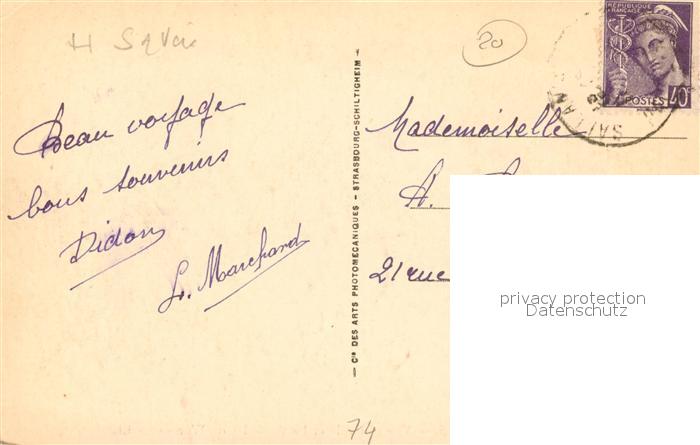 H Savoie
20
RÉPUBLIQUE
FRANÇAISE
POSTES 40c
SALLAN
Beau voyage
bons souvenirs
Didon
L. Marchand
— Cie DES ARTS PHOTOMECANIQUES - STRASBOURG-SCHILTIGHEIM —
Mademoiselle
A.
21 rue
privacy protection
Datenschutz
74